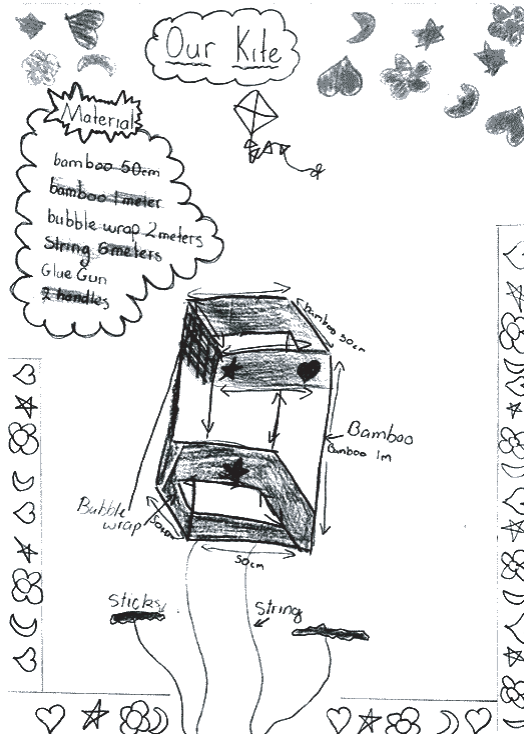 Our Kite
Material
bamboo 50cm
bamboo 1 meter
bubble wrap 2 meters
String 6 meters
Glue Gun
2 handles
bamboo 50cm
Bamboo
Bamboo 1m
Bubble
wrap
50cm
50cm
Sticks
String